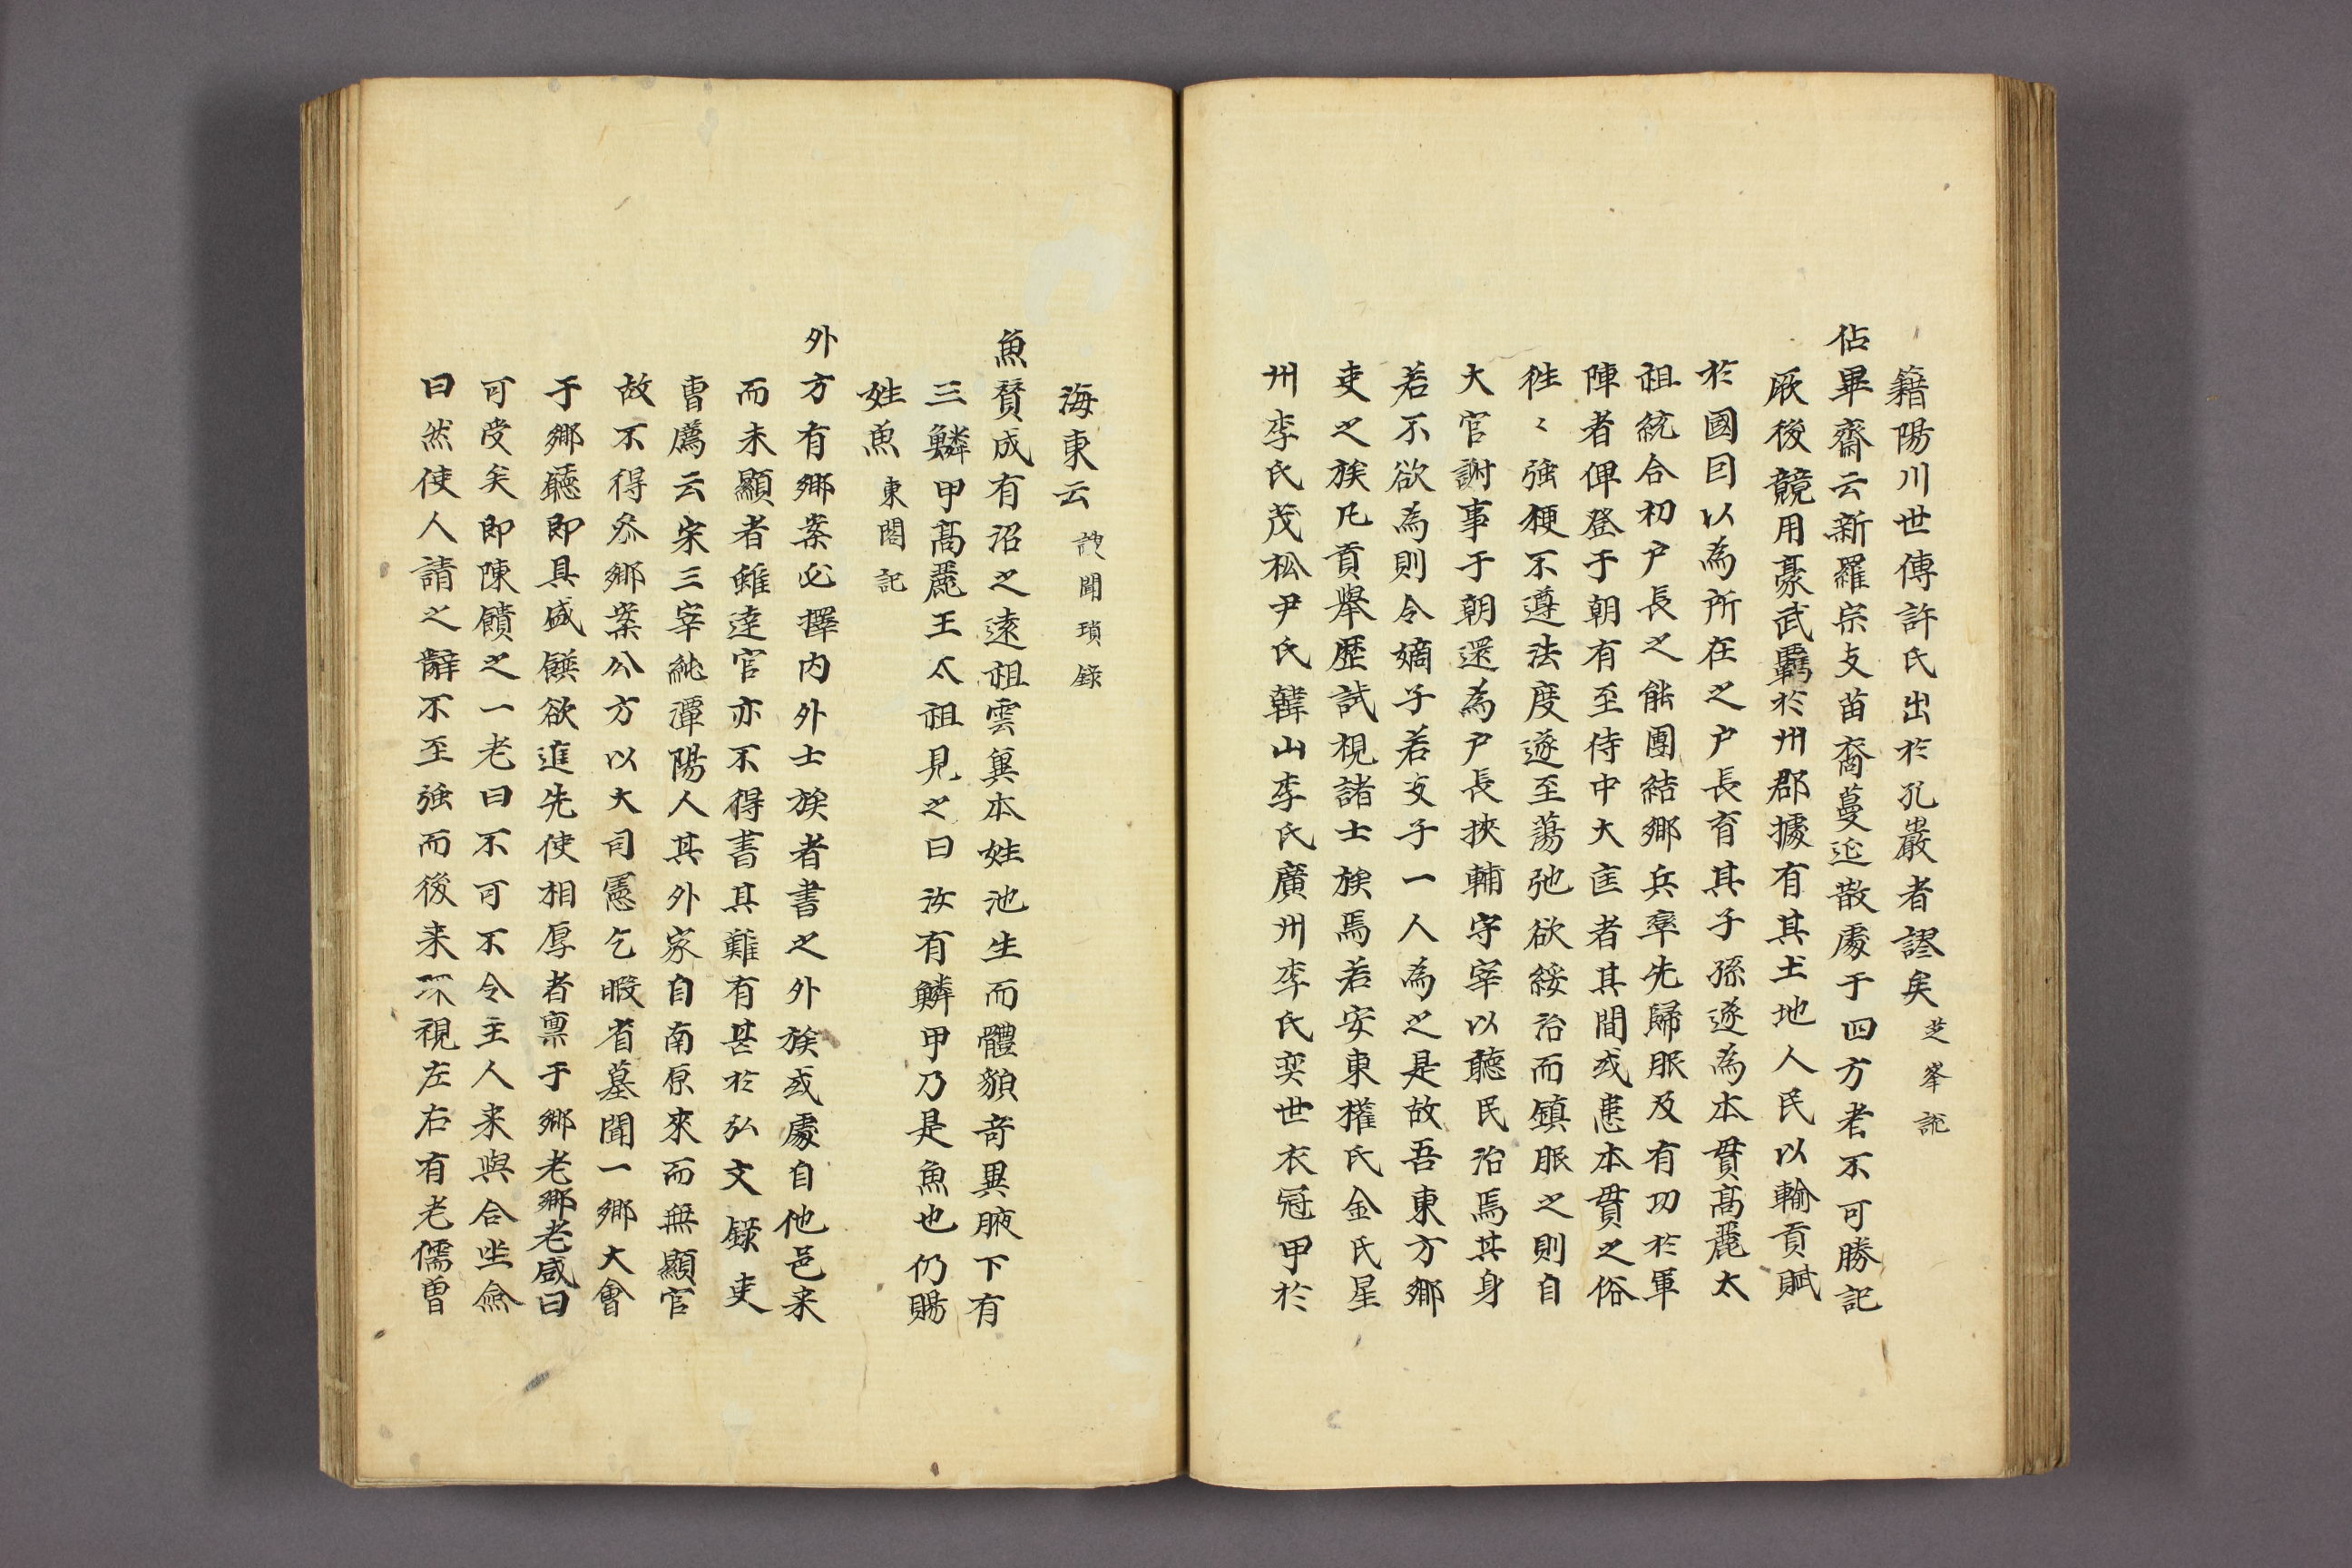 籍陽川世傳許氏出於孔巖者謬矣 芝峯說
佔畢齋云新羅宗支苗裔蔓延散處于四方者不可勝記
厥後競用豪武覇於州郡據有其土地人民以輸貢賦
於國囙以為所在之户長育其子孫遂為本貫髙麗太
祖統合初户長之能團結鄉兵率先歸服及有功於軍
陣者俾登于朝有至侍中大匡者其間或患本貫之俗
徃〻强梗不遵法度遂至蕩弛欲綏治而鎮服之則自
大官謝事于朝還為户長挾輔守宰以聽民治焉其身
若不欲為則令嫡子若支子一人為之是故吾東方鄉
吏之族凡貢舉歷試視諸士族焉若安東權氏金氏星
州李氏茂松尹氏韓山李氏廣州李氏奕世衣冠甲於
海東云 謏聞瑣錄
魚贇成有沼之遠祖雲巽本姓池生而體貌竒異腋下有
三鱗甲髙麗王太祖見之曰汝有鱗甲乃是魚也仍賜
姓魚 東閣記
外方有鄉案必擇内外士族者書之外族或處自他邑来
而未顯者雖達官亦不得書其難有甚於弘文錄吏
曹薦云宋三宰純潭陽人其外家自南原來而無顯官
故不得叅鄉案公方以大司憲乞暇省墓聞一鄉大會
于鄉廳即具盛饌欲進先使相厚者稟于鄉老鄉老咸曰
可受矣即陳饋之一老曰不可不令主人来與合坐僉
曰然使人請之辭不至强而後来环視左右有老儒曽